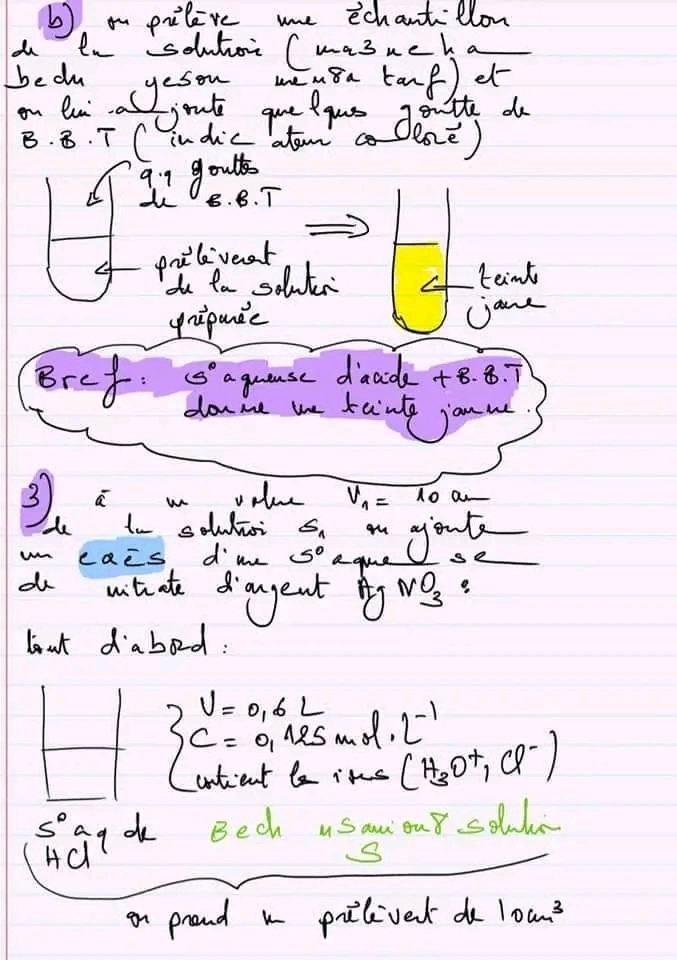 b) on prélève une échantillon
de la solution (ma3neha
bech yeson men8a tarf) et
on lui ajoute quelques goutte de
B.B.T (indicateur coloré)
q.q gouttes
de B.B.T
⇒
prélèvent
de la solution
préparée
teinte
jaune
Bref: s° aqueuse d'acide + B.B.T
donne une teinte jaune.
3) à un volume V₁ = 10 cm
de la solution S₁ on ajoute
un excès d'une s° aqueuse
de nitrate d'argent AgNO₃ :
tout d'abord :
V = 0,6 L
C = 0,125 mol.L⁻¹
contient les ions (H₃O⁺, Cl⁻)
s° aq de
HCl
Bech nsamiou8 solution
S
on prend un prélèvent de 10cm³